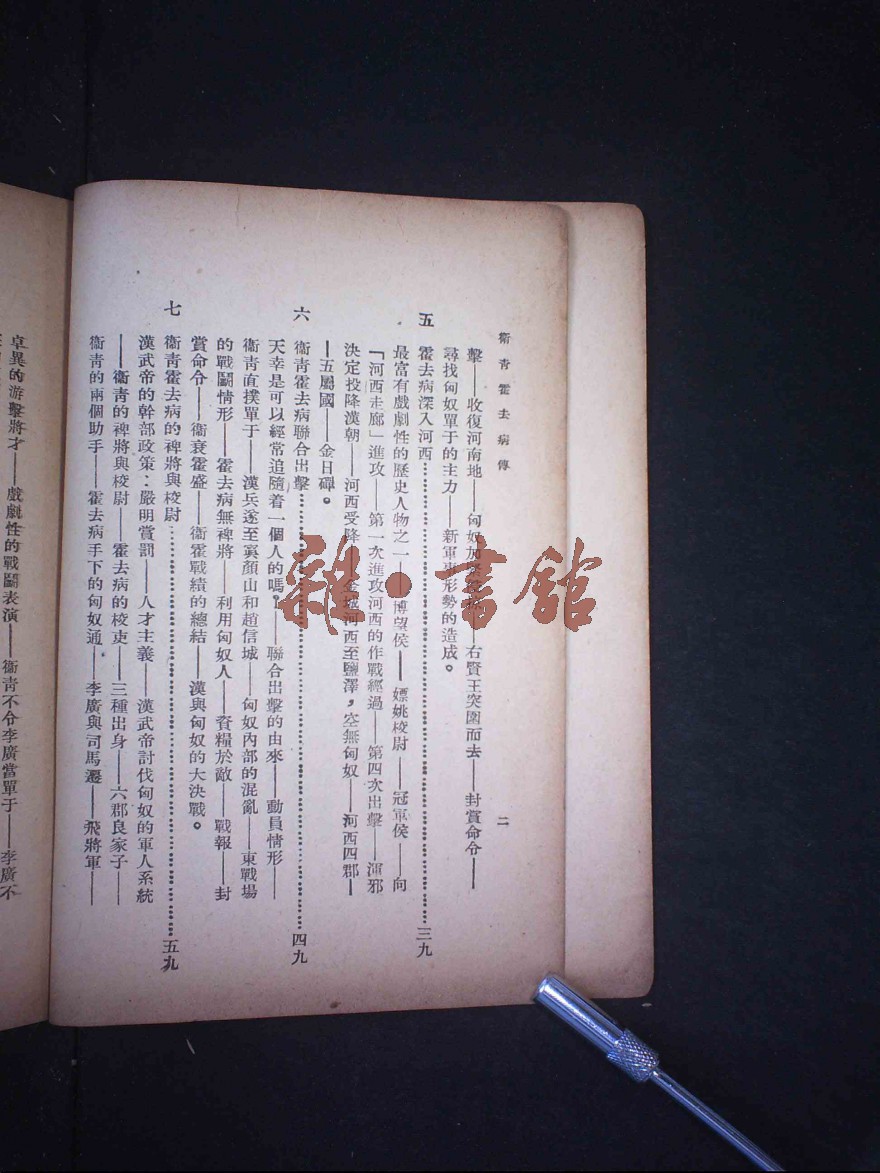 衞青霍去病傳
二
擊——收復河南地——匈奴加緊——右賢王突圍而去——封賞命令——
尋找匈奴單于的主力——新軍事形勢的造成。
五 霍去病深入河西……三九
最富有戲劇性的歷史人物之一——博望侯——嫖姚校尉——冠軍侯——向
「河西走廊」進攻——第一次進攻河西的作戰經過——第四次出擊——渾邪
決定投降漢朝——河西受降——金城河西至鹽澤，空無匈奴——河西四郡——
——五屬國——金日磾。
六 衞青霍去病聯合出擊……四九
天幸是可以經常追隨着一個人的嗎？——聯合出擊的由來——動員情形——
衞青直撲單于——漢兵遂至寘顏山和趙信城——匈奴內部的混亂——東戰場
的戰鬬情形——霍去病無裨將——利用匈奴人——資糧於敵——戰報——封
賞命令——衞衰霍盛——衞霍戰績的總結——漢與匈奴的大決戰。
七 衞青霍去病的裨將與校尉……五九
漢武帝的幹部政策：嚴明賞罰——人才主義——漢武帝討伐匈奴的軍人系統
——衞青的裨將與校尉——霍去病的校吏——三種出身——六郡良家子——
衞青的兩個助手——霍去病手下的匈奴通——李廣與司馬遷——飛將軍——
卓異的游擊將才——戲劇性的戰鬬表演——衞青不令李廣當單于——李廣不
雜·書館